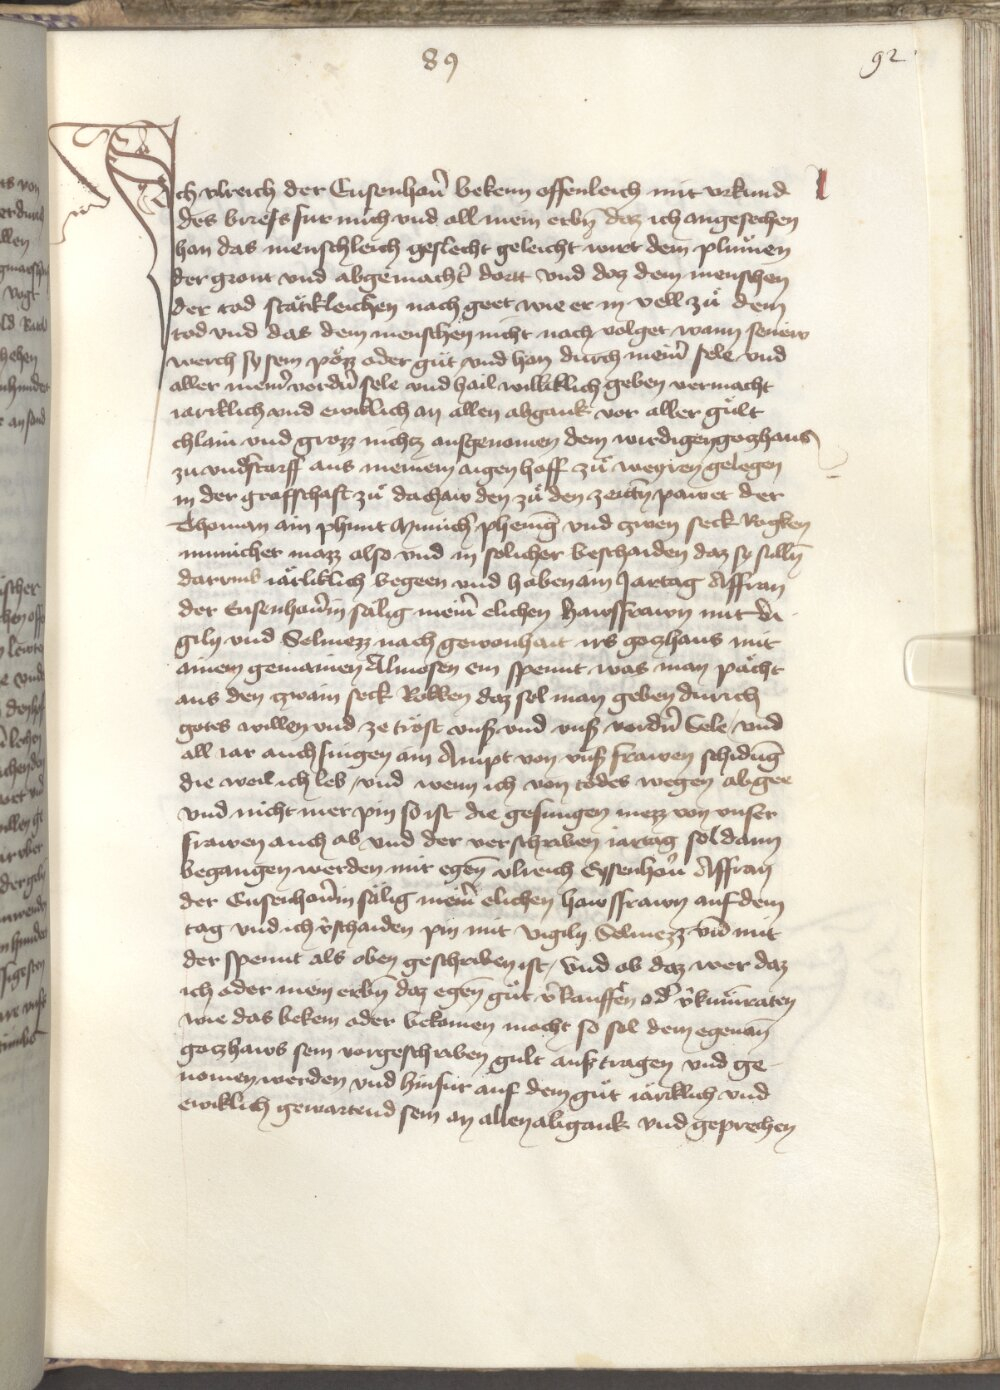 89
92
Ich vlreich der Eusenhou͛ bekenn offenleich mit vrkund
des briefs fur mich vnd all mein erbn̄ daz ich angesechen
han das menschleich geslecht geleicht wirt dem pluͤmen
der gront vnd abgemacht͛ dortt vnd daz dem menschen
der tod staͤtkleichen nach geet wie er in vell zuͦ dem
tod vnd das dem menschen nicht nach volget wann seneiw
werch sy sein poͤzz oder guͦt vnd han durch mein͛ sele vnd
aller mein͛ vordn͛ sele vnd hail willikklich geben vermacht
iartklich vnd ewiklich an allen abgank vor aller guͤlt
chlain vnd grozz nichtz ausgenomen dem wirdigen gotzhaus
zu vnd͛storff aus meinem aigen hoff zuͦ weyren gelegen
in der graffschaft zuͦ dachaw den zuͦ den zeittn̄ pawet der
Thoman ain phunt Munich͛ pheniḡ vnd zwen seck Rogken
municher mazz also vnd in solicher beschaiden daz sy sulln̄
darumb iaͤrliklich begeen vnd haben ain Jartag Affran
der Eusenhou͛in saͤlig mein͛ elichen hawsfrawn mit vi
giln vnd Selmezz nach gewonhait irs gotzhaus mit
ainem gemainen Almosen ein spennt was man paͤcht
aus den zwain seck Rokken daz sol man geben durich
gotes willen vnd ze troͤst vns͛ vnd vns͛ vordn͛ Sele vnd
all iar auch singen ain Ampt von vns͛ frawen schidūg
die weil ich leb / vnd wenn ich von todes wegen abgee
vnd nicht mer pin so ist die gesungen mezz von vnser
frawen auch ab vnd der verschriben iartag sol dann
begangen werden mir egen̄ vlreich Eysenhou͛ Affran
der Eusenhou͛in saͤlig mein͛ elichen hawsfrawn auf dem
tag vnd ich v͛schaiden pin mit vigiln Selmezz vn̄ mit
der spennt als oben geschriben ist / Vnd ob daz wer daz
ich oder mein erbn̄ daz egen̄ guͦt v͛kauffen̄ od͛ v͛kuͤmraten
wie das bekem oder bekomen mocht so sol dem egenan̄
gotzhaws sein vorgeschriben gult aus tragen vnd ge
nomen werden vnd hinfur auf dem guͦt iaͤrklich vnd
ewiklich gewartend sein an allen abgank vnd geprechen